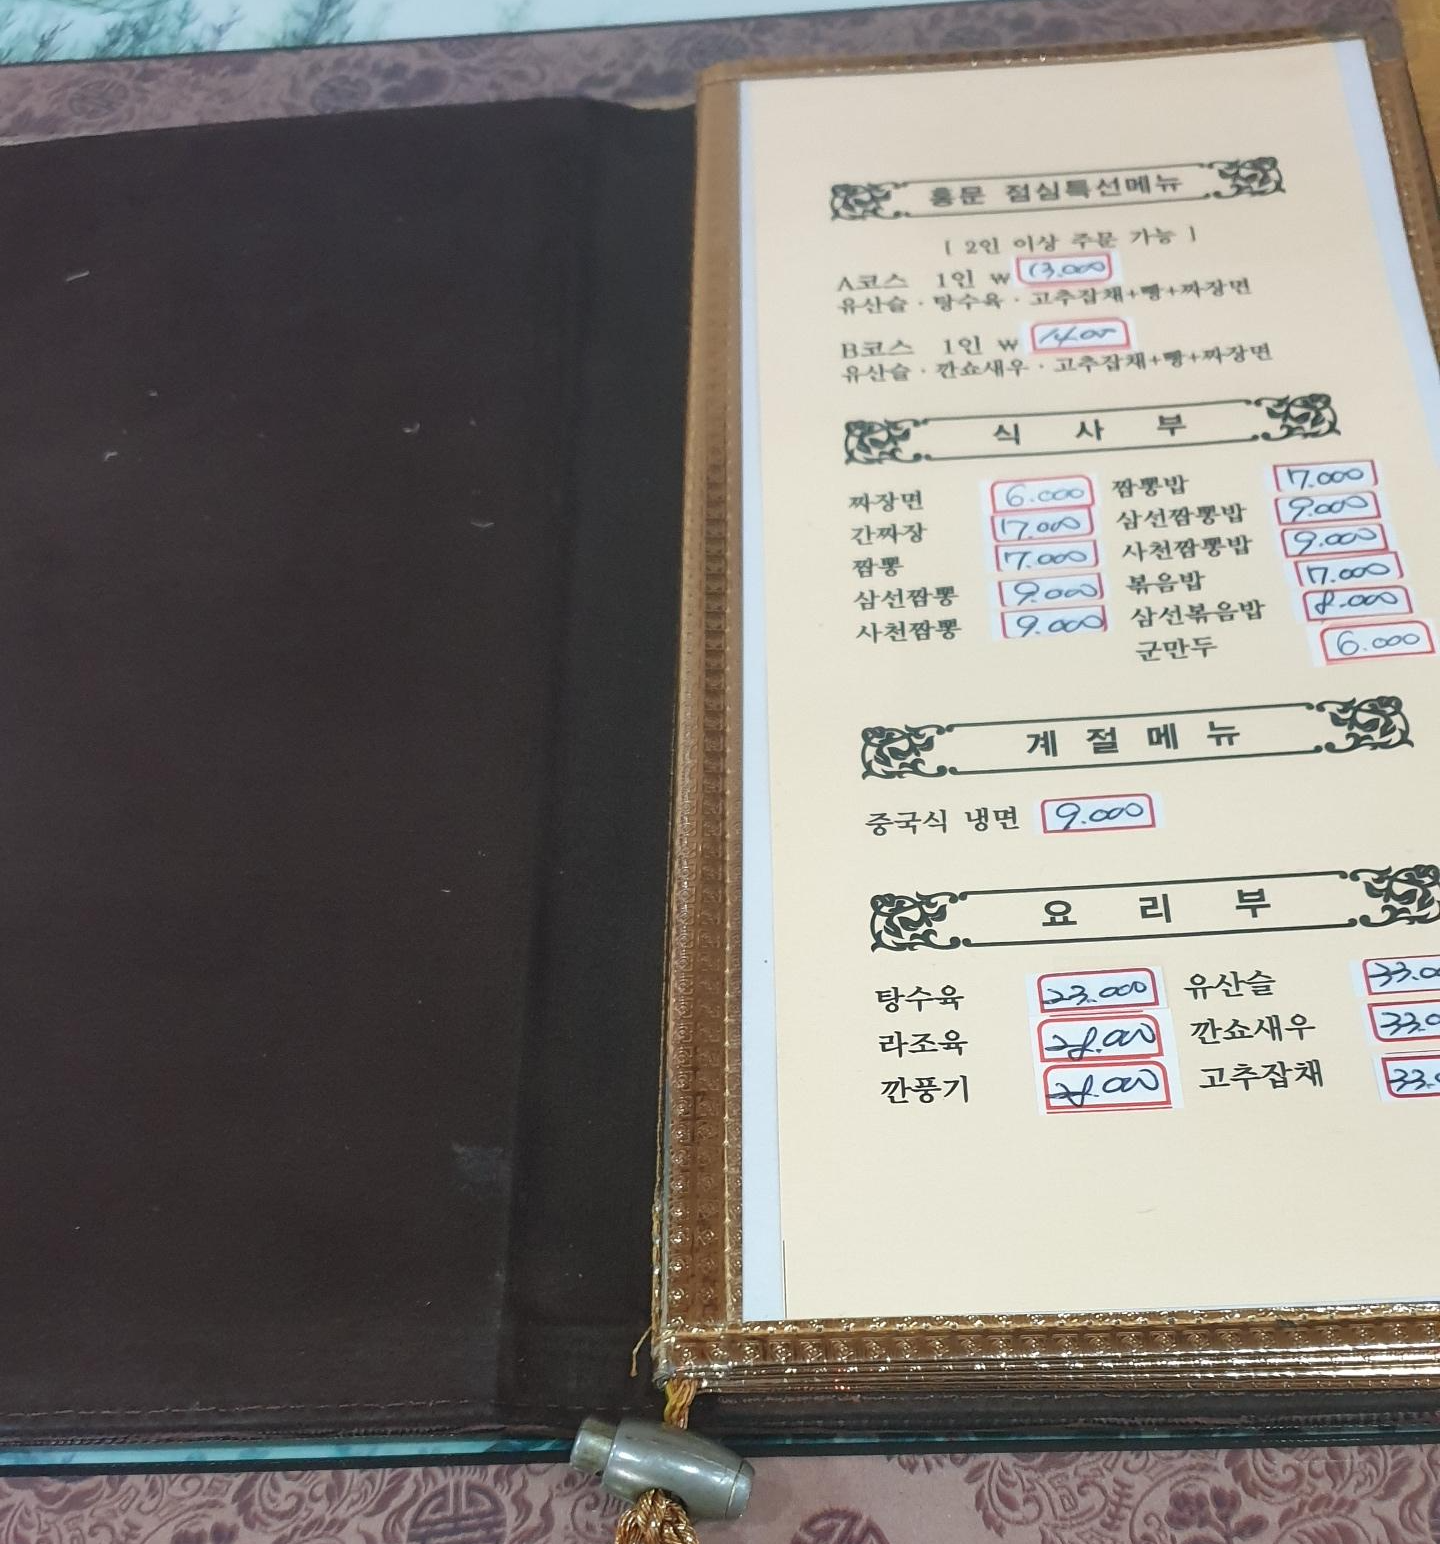 홍문 점심특선메뉴
[ 2인 이상 주문 가능 ]
A코스 1인 ₩ 13.000
유산슬 · 탕수육 · 고추잡채+빵+짜장면
B코스 1인 ₩ 14.000
유산슬 · 깐쇼새우 · 고추잡채+빵+짜장면
식 사 부
짜장면 6.000 짬뽕밥 7.000
간짜장 7.000 삼선짬뽕밥 9.000
짬뽕 7.000 사천짬뽕밥 9.000
삼선짬뽕 9.000 볶음밥 7.000
사천짬뽕 9.000 삼선볶음밥 8.000
군만두 6.000
계 절 메 뉴
중국식 냉면 9.000
요 리 부
탕수육 23.000 유산슬 33.00
라조육 28.000 깐쇼새우 33.0
깐풍기 28.000 고추잡채 33.